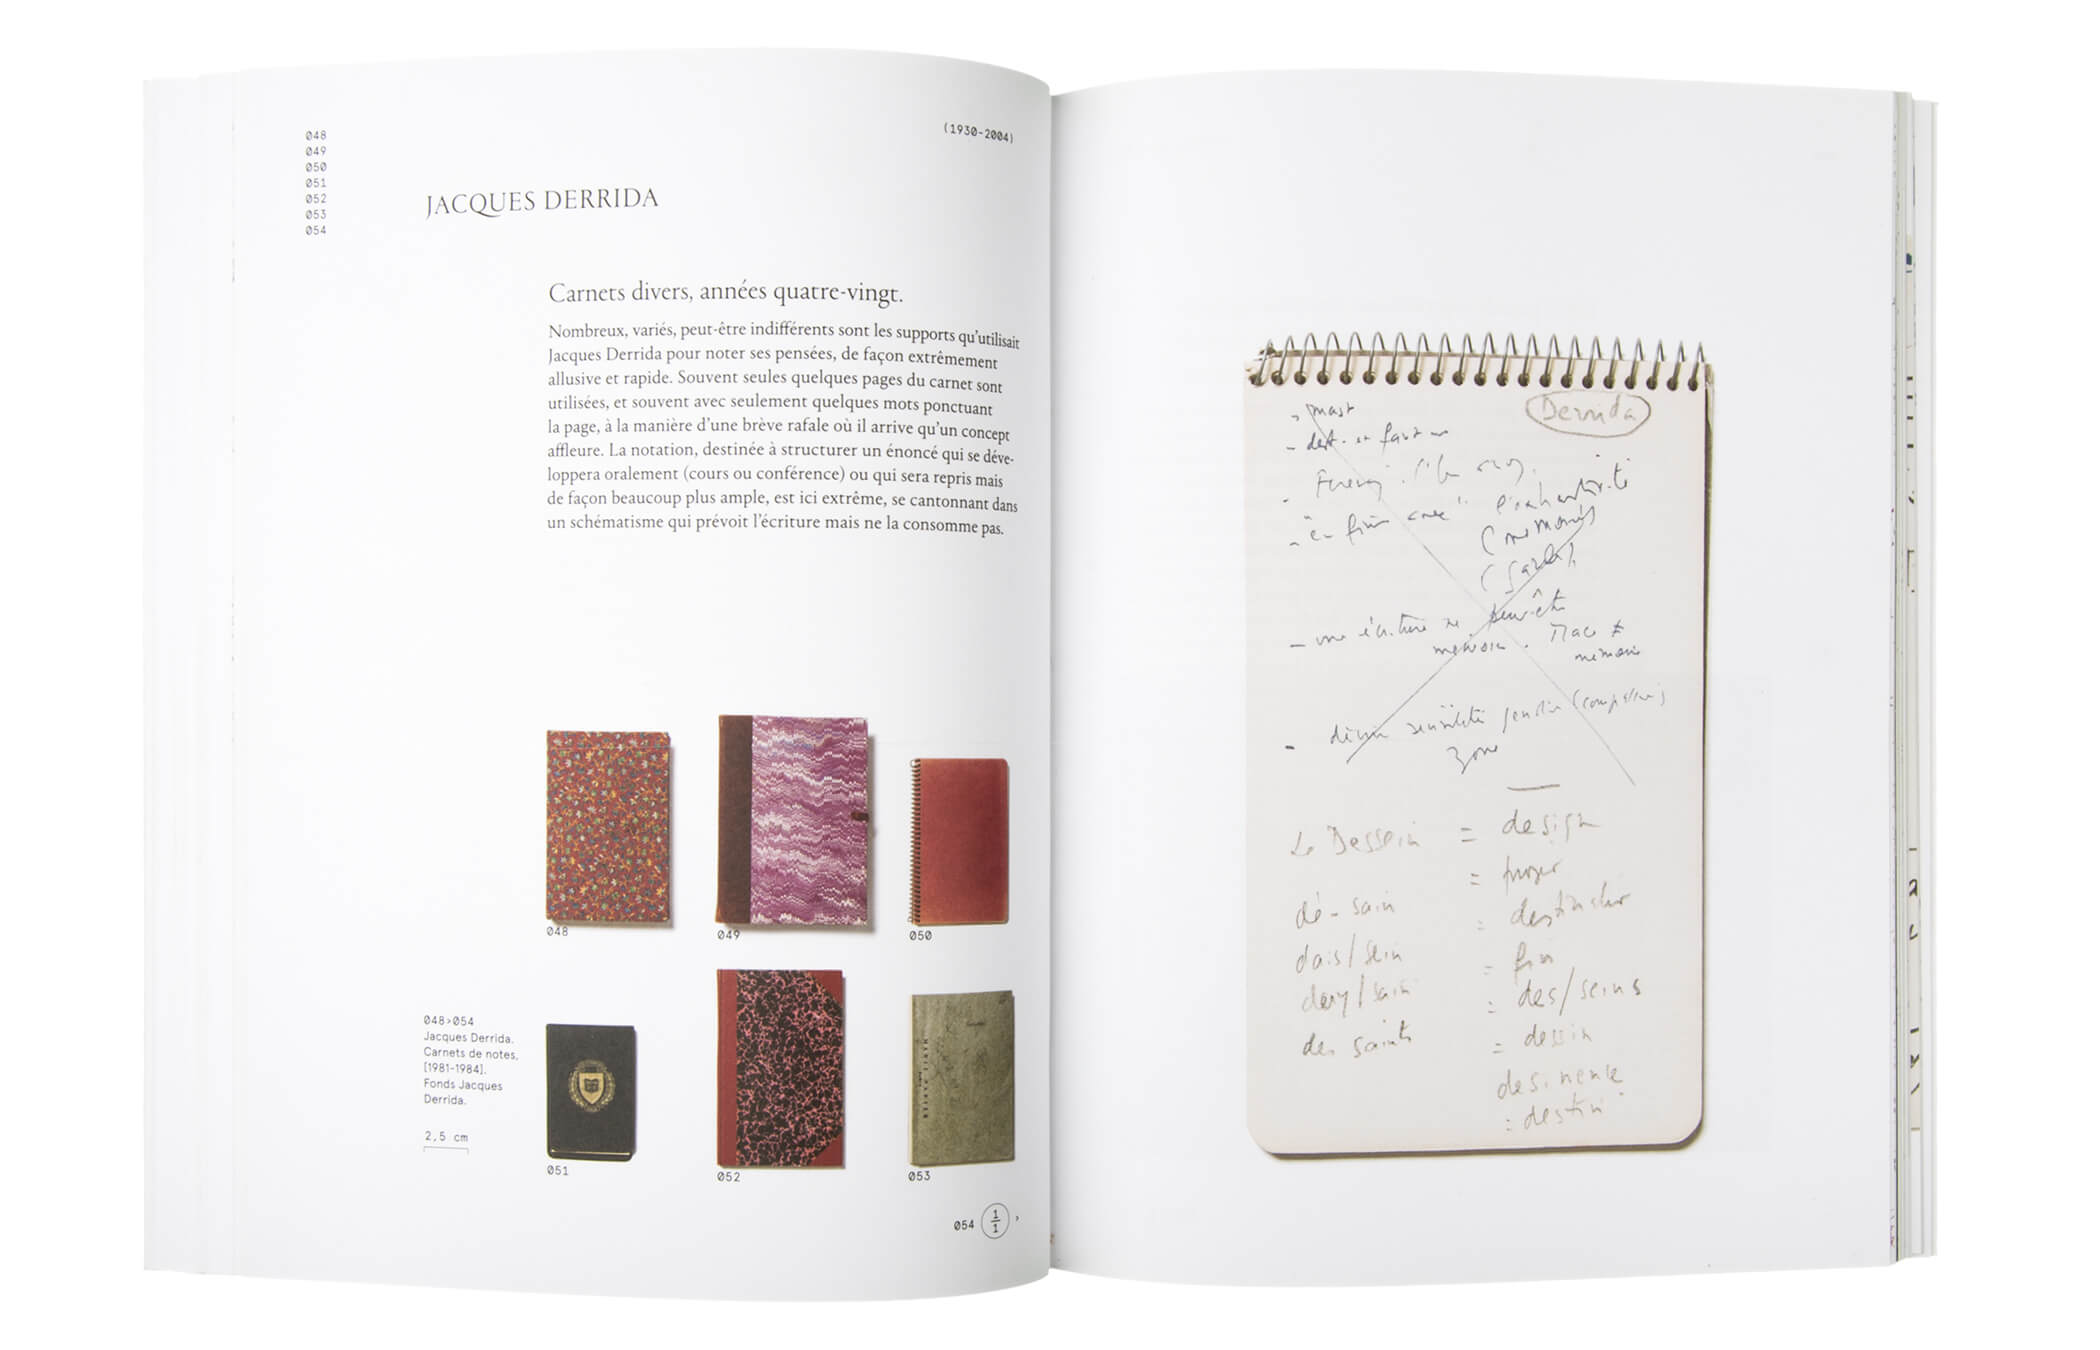 048
049
050
051
052
053
054
(1930-2004)
JACQUES DERRIDA
Carnets divers, années quatre-vingt.
Nombreux, variés, peut-être indifférents sont les supports qu'utilisait
Jacques Derrida pour noter ses pensées, de façon extrêmement
allusive et rapide. Souvent seules quelques pages du carnet sont
utilisées, et souvent avec seulement quelques mots ponctuant
la page, à la manière d'une brève rafale où il arrive qu'un concept
affleure. La notation, destinée à structurer un énoncé qui se déve-
loppera oralement (cours ou conférence) ou qui sera repris mais
de façon beaucoup plus ample, est ici extrême, se cantonnant dans
un schématisme qui prévoit l'écriture mais ne la consomme pas.
048
049
050
048>054
Jacques Derrida.
Carnets de notes,
[1981-1984].
Fonds Jacques
Derrida.
2,5 cm
051
052
053
054 1/1 >
Derrida
- une écriture peut-être
Trace ≠
mémoire
zone
Le Dessein = design
=
dé-sain =
dais/sein = fin
= des/seins
des saints = dessin
desinence
= destin